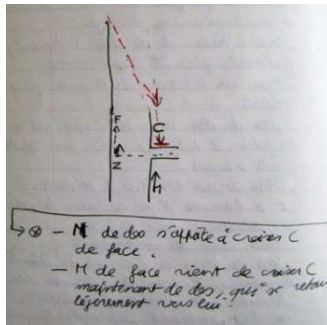 F
C
Z
M
→ ⊗ – N de dos s'apprête à croiser C
de face.
– M de face vient de croiser C
maintenant de dos, qui se retou
légèrement vers lui.